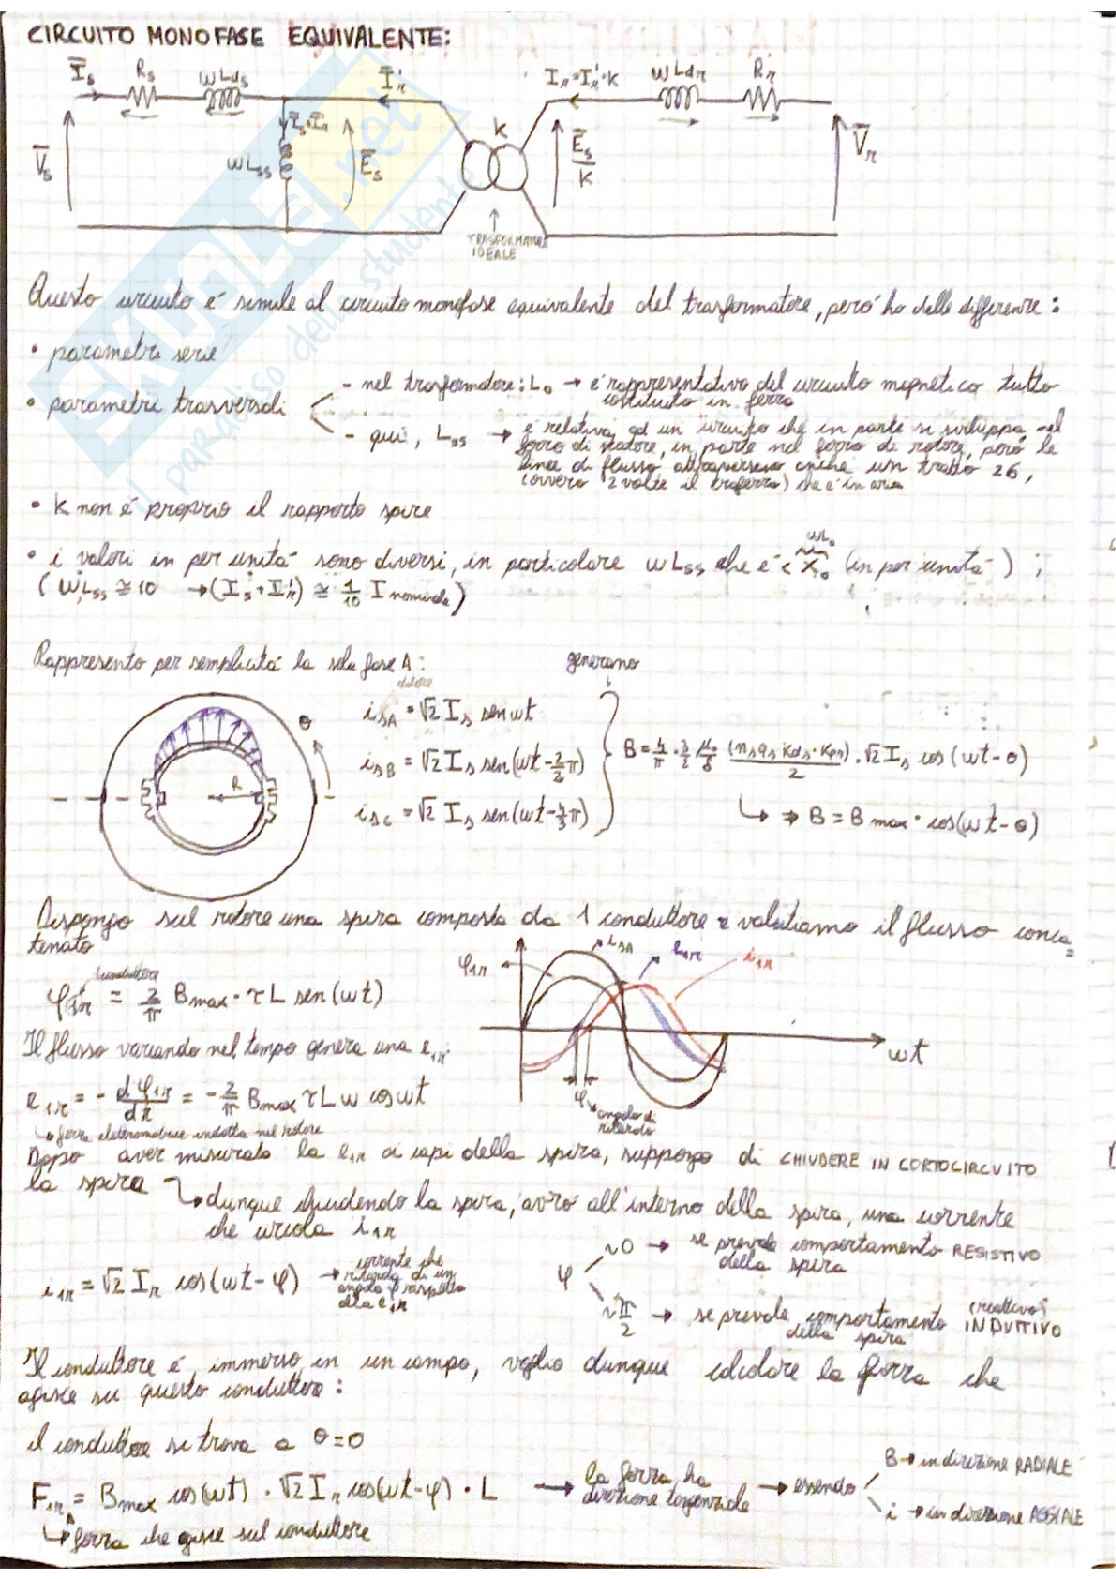 CIRCUITO MONOFASE EQUIVALENTE:
Īs Rs ωLds Ī'r Ir = I'r·K ωLdr Rr
V̄s Īs+Ī'r ωLss Ēs K Ēs/K V̄r
TRASFORMATORE IDEALE
Questo circuito é simile al circuito monofase equivalente del trasformatore, peró ho delle differenze:
• parametri serie
• parametri trasversali
- nel trasformatore: L0 → é rappresentativo del circuito magnetico tutto
costituito in ferro
- qui, Lss → é relativa ad un circuito che in parte si sviluppa nel
ferro di statore, in parte nel ferro di rotore, peró le
linee di flusso attraversano anche un tratto 2δ,
(ovvero 2 volte il traferro) che é in aria
• K non é proprio il rapporto spire
• i valori in per unitá sono diversi, in particolare ωLss che é < X0 (in per unitá) ;
ωL0
(ωLss ≅ 10 → (Is + I'r) ≅ 1/10 I nominale)
Rappresento per semplicitá la sola fase A:
generano
θ
R
isA = √2 Is sen ωt
isB = √2 Is sen(ωt - 2/3 π)
isC = √2 Is sen(ωt - 4/3 π)
B = 4/π · 3/2 μ0/δ (ns qs Kds · Kps)/2 · √2 Is cos (ωt - θ)
↳ ⇒ B = B max · cos(ωt - θ)
Dispongo sul rotore una spira composta da 1 conduttore e valutiamo il flusso conca_
tenato
φ1r = 2/π Bmax · τ L sen(ωt)
φ1r isA e1r i1r
ωt
φ
angolo di
ritardo
Il flusso variando nel tempo genera una e1r:
e1r = - dφ1r/dt = - 2/π Bmax τ L ω cos ωt
↳ forza elettromotrice indotta nel rotore
Dopo aver misurato la e1r ai capi della spira, suppongo di CHIUDERE IN CORTOCIRCUITO
la spira
↳ dunque chiudendo la spira, avró all'interno della spira, una corrente
che circola i1r
i1r = √2 Ir cos(ωt - φ) → corrente che
ritarda di un
angolo φ rispetto
alla e1r
φ
~0 → se prevale comportamento RESISTIVO
della spira
~π/2 → se prevale comportamento (reattivo) INDUTTIVO
della spira
Il conduttore é immerso in un campo, voglio dunque calcolare la forza che
agisce su questo conduttore:
il conduttore si trova a θ=0
F1r = Bmax cos(ωt) · √2 Ir cos(ωt-φ) · L → la forza ha
direzione tangenziale → essendo
B → in direzione RADIALE
i → in direzione ASSIALE
↳ forza che agisce sul conduttore